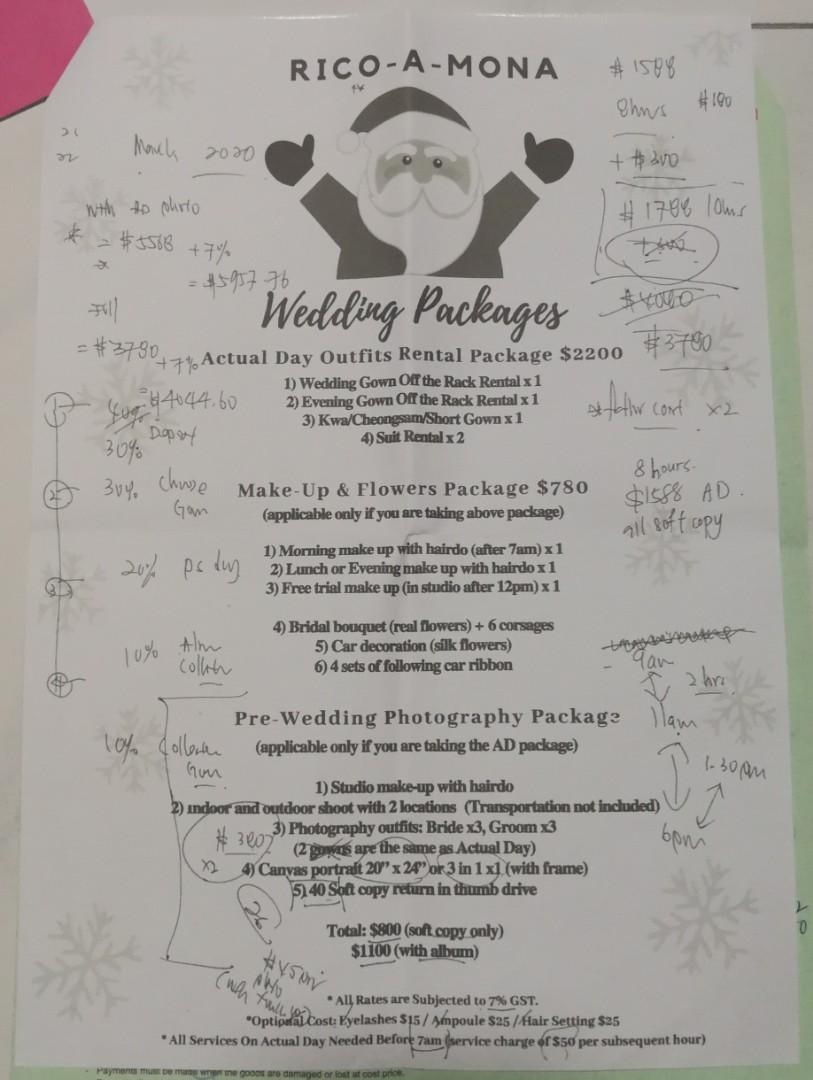 RICO-A-MONA
$1588
8hrs $180
+ $300
$1788 10hrs
$4080
$3780
21
22
March 2020
with AD photo
= $5568 +7%
= $5957.76
Full
= $3780 +7%
= $4044.60
Wedding Packages
Actual Day Outfits Rental Package $2200
1) Wedding Gown Off the Rack Rental x 1
2) Evening Gown Off the Rack Rental x 1
3) Kwa/Cheongsam/Short Gown x 1
4) Suit Rental x 2
x2
1
30% Deposit
2
30% Choose
Gown
Make-Up & Flowers Package $780
(applicable only if you are taking above package)
8 hours.
$1588 AD.
all soft copy
1) Morning make up with hairdo (after 7am) x 1
2) Lunch or Evening make up with hairdo x 1
3) Free trial make up (in studio after 12pm) x 1
3
20% ps day
4) Bridal bouquet (real flowers) + 6 corsages
5) Car decoration (silk flowers)
6) 4 sets of following car ribbon
4
10%
9am
2 hrs
11am
1-30pm
6pm
Pre-Wedding Photography Package
(applicable only if you are taking the AD package)
10% Collection
Gown
1) Studio make-up with hairdo
2) indoor and outdoor shoot with 2 locations (Transportation not included)
3) Photography outfits: Bride x3, Groom x3
(2 gowns are the same as Actual Day)
4) Canvas portrait 20" x 24" or 3 in 1 x1 (with frame)
5) 40 Soft copy return in thumb drive
x2
26
Total: $800 (soft copy only)
$1100 (with album)
* All Rates are Subjected to 7% GST.
*Optional Cost: Eyelashes $15 / Ampoule $25 / Hair Setting $25
* All Services On Actual Day Needed Before 7am (service charge of $50 per subsequent hour)
Payments must be made when the goods are damaged or lost at cost price.